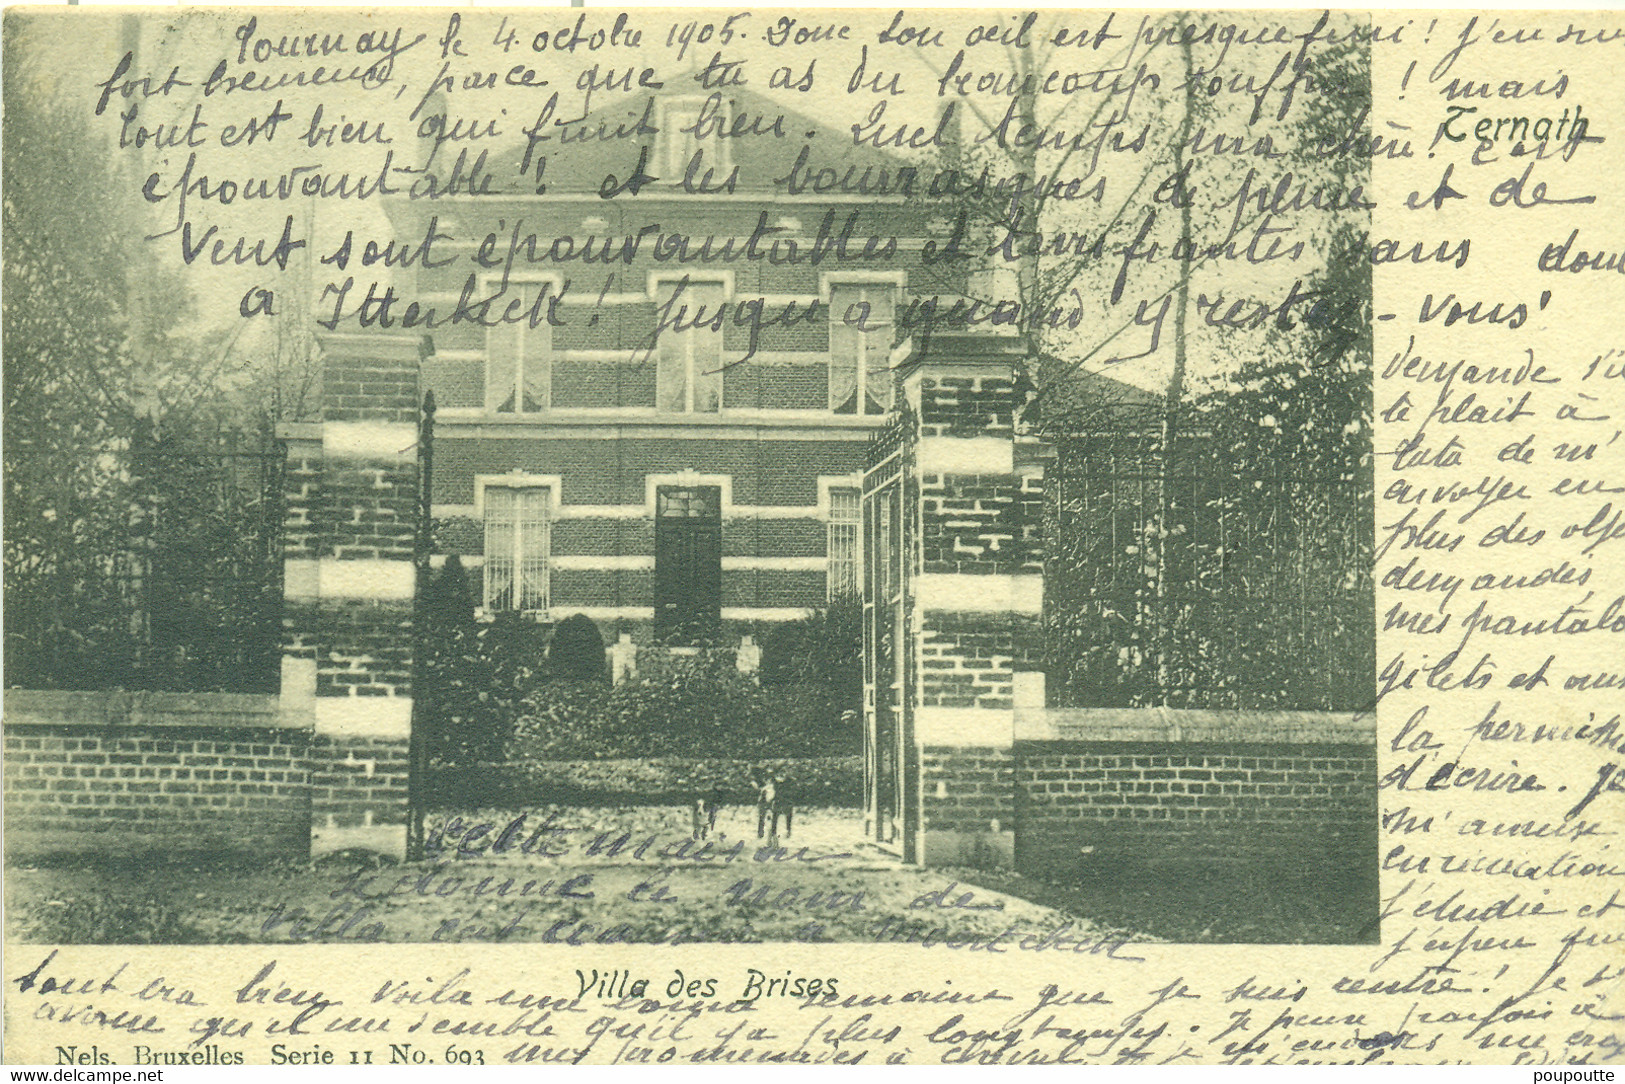 Tournay le 4 octobre 1905. Donc ton oeil est presque fini! J'en suis
fort heureuse, parce que tu as du beaucoup souffrir! mais
tout est bien qui finit bien. Quel temps ma chère! c'est
Ternath
épouvantable! et les bourrasques de pluie et de
vent sont épouvantables et terrifiantes sans doute
a Itterbeek! Jusqu'a quand y restez-vous?
Demande s'il
te plait à
Tata de m'
envoyer en
plus des objets
demandés
mes pantalons
gilets et
la permission
d'écrire. Je
m'amuse
en récréation
j'étudie et
j'espère que
cette maison
se donne le nom de
Villa c'est comme a
tout ira bien voila une bonne semaine que je suis rentré! Je t'
Villa des Brises
avoue qu'il me semble qu'il y a plus longtemps. Je pense parfois à
Nels, Bruxelles Serie 11 No. 693
mes promenades à cheval et je m'endors me
poupoutte